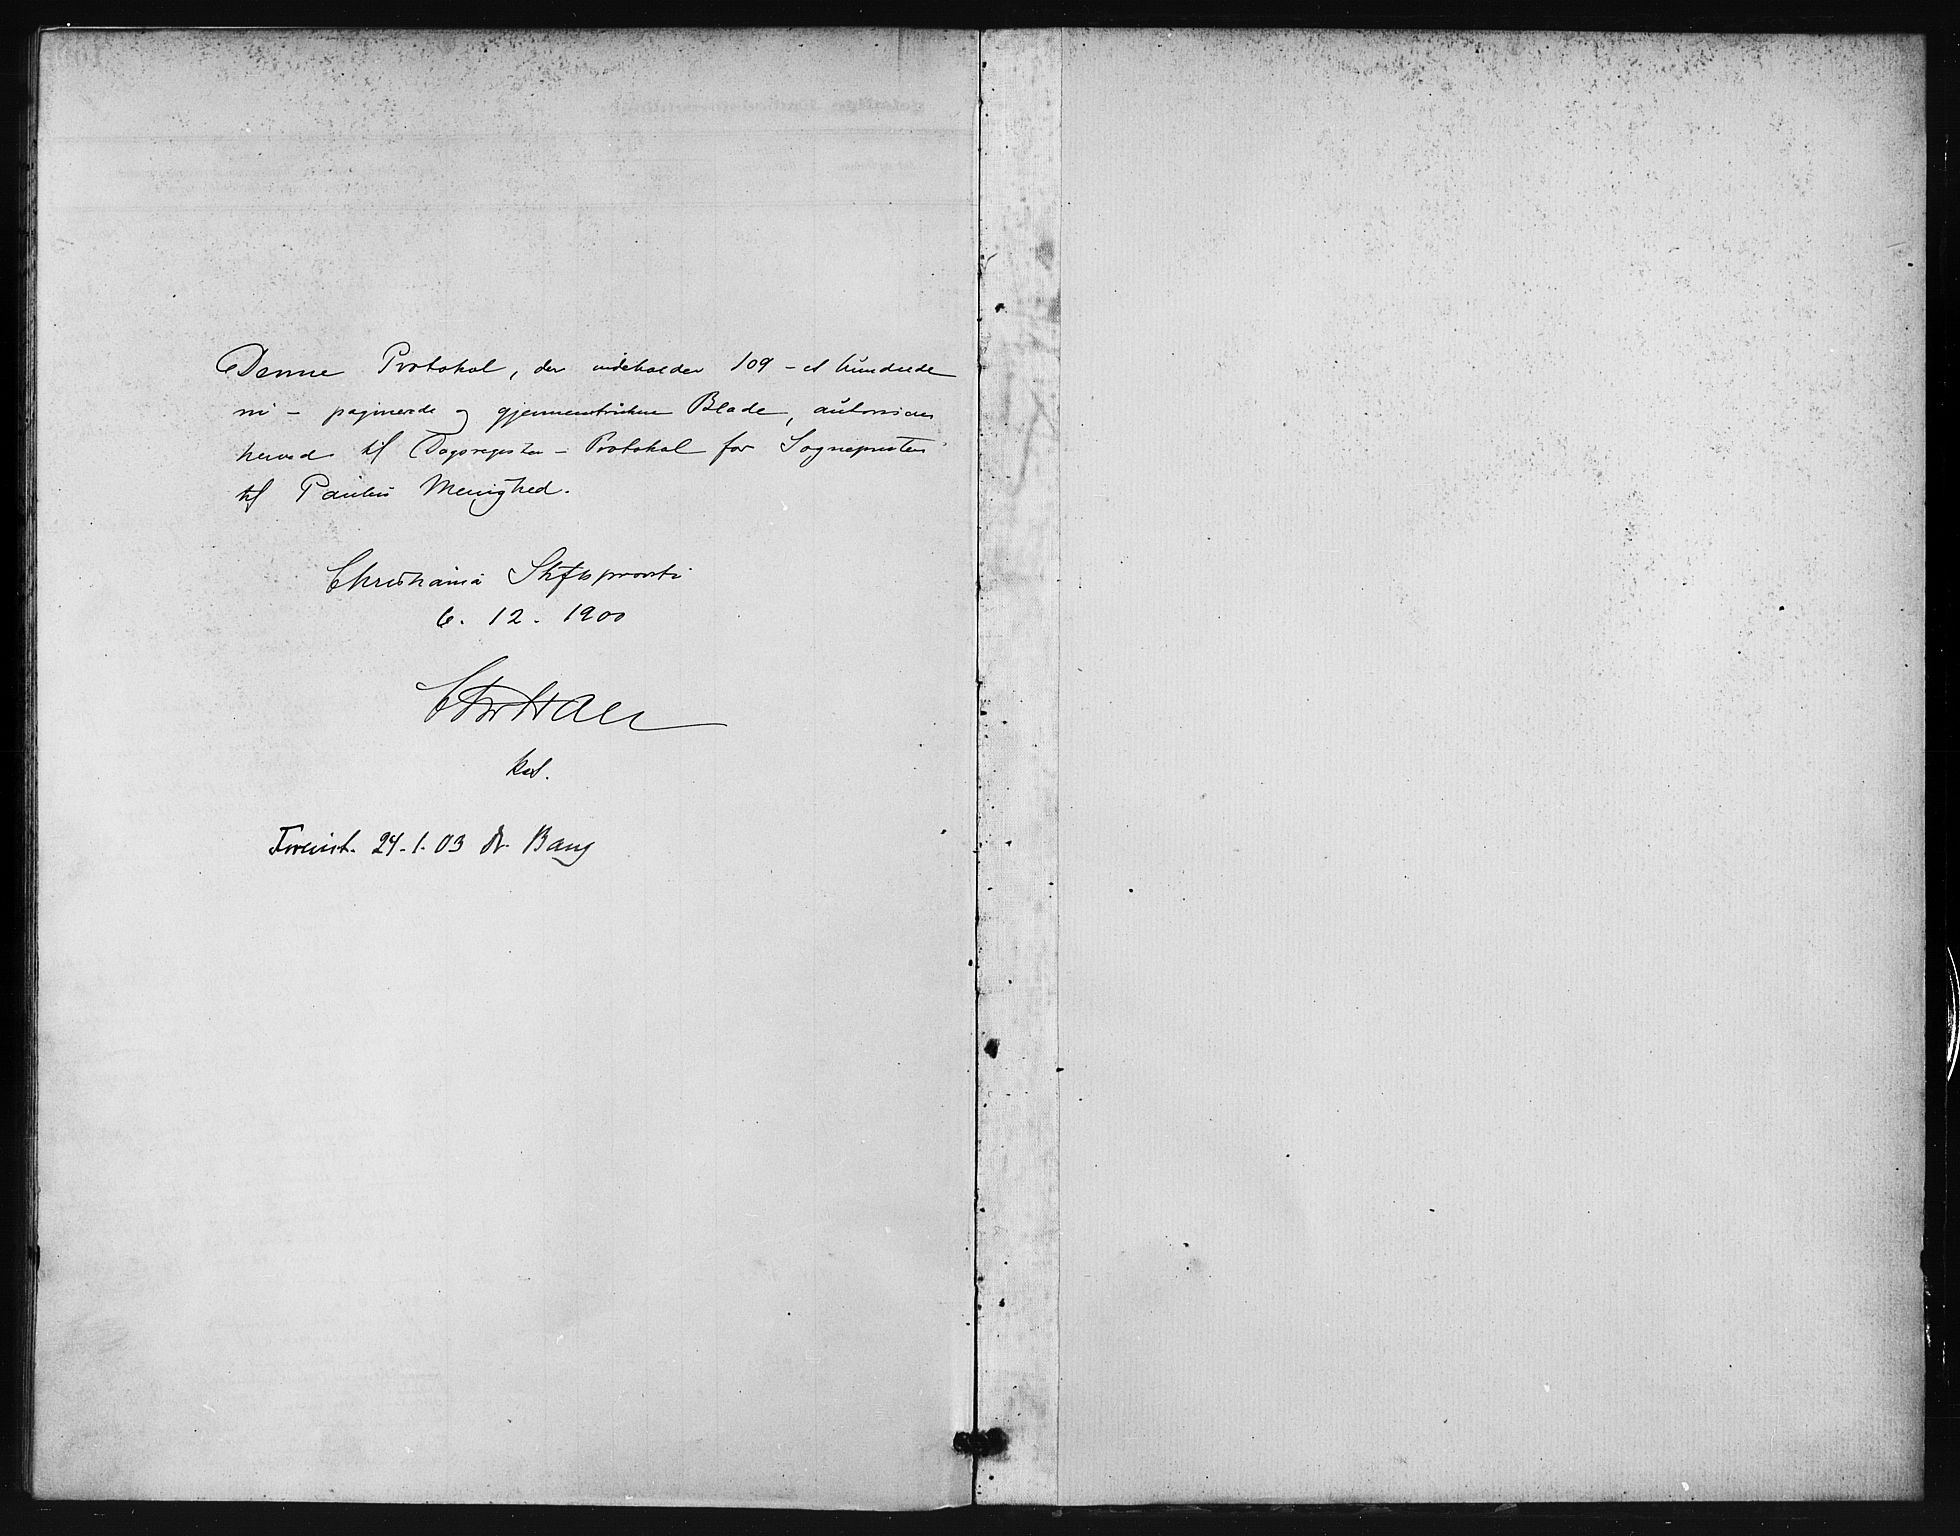 Denne Protokol, der indeholder 109 – et hundrede
ni – paginerede og gjennemtrukne Blade, autoriseres
herved til Dagsregister – Protokol for Sognepresten
til Paulus Menighed.
Christiania Stiftsprovsti
6. 12. 1900
kst.
Forevist. 24. 1. 03 Dr. Bang